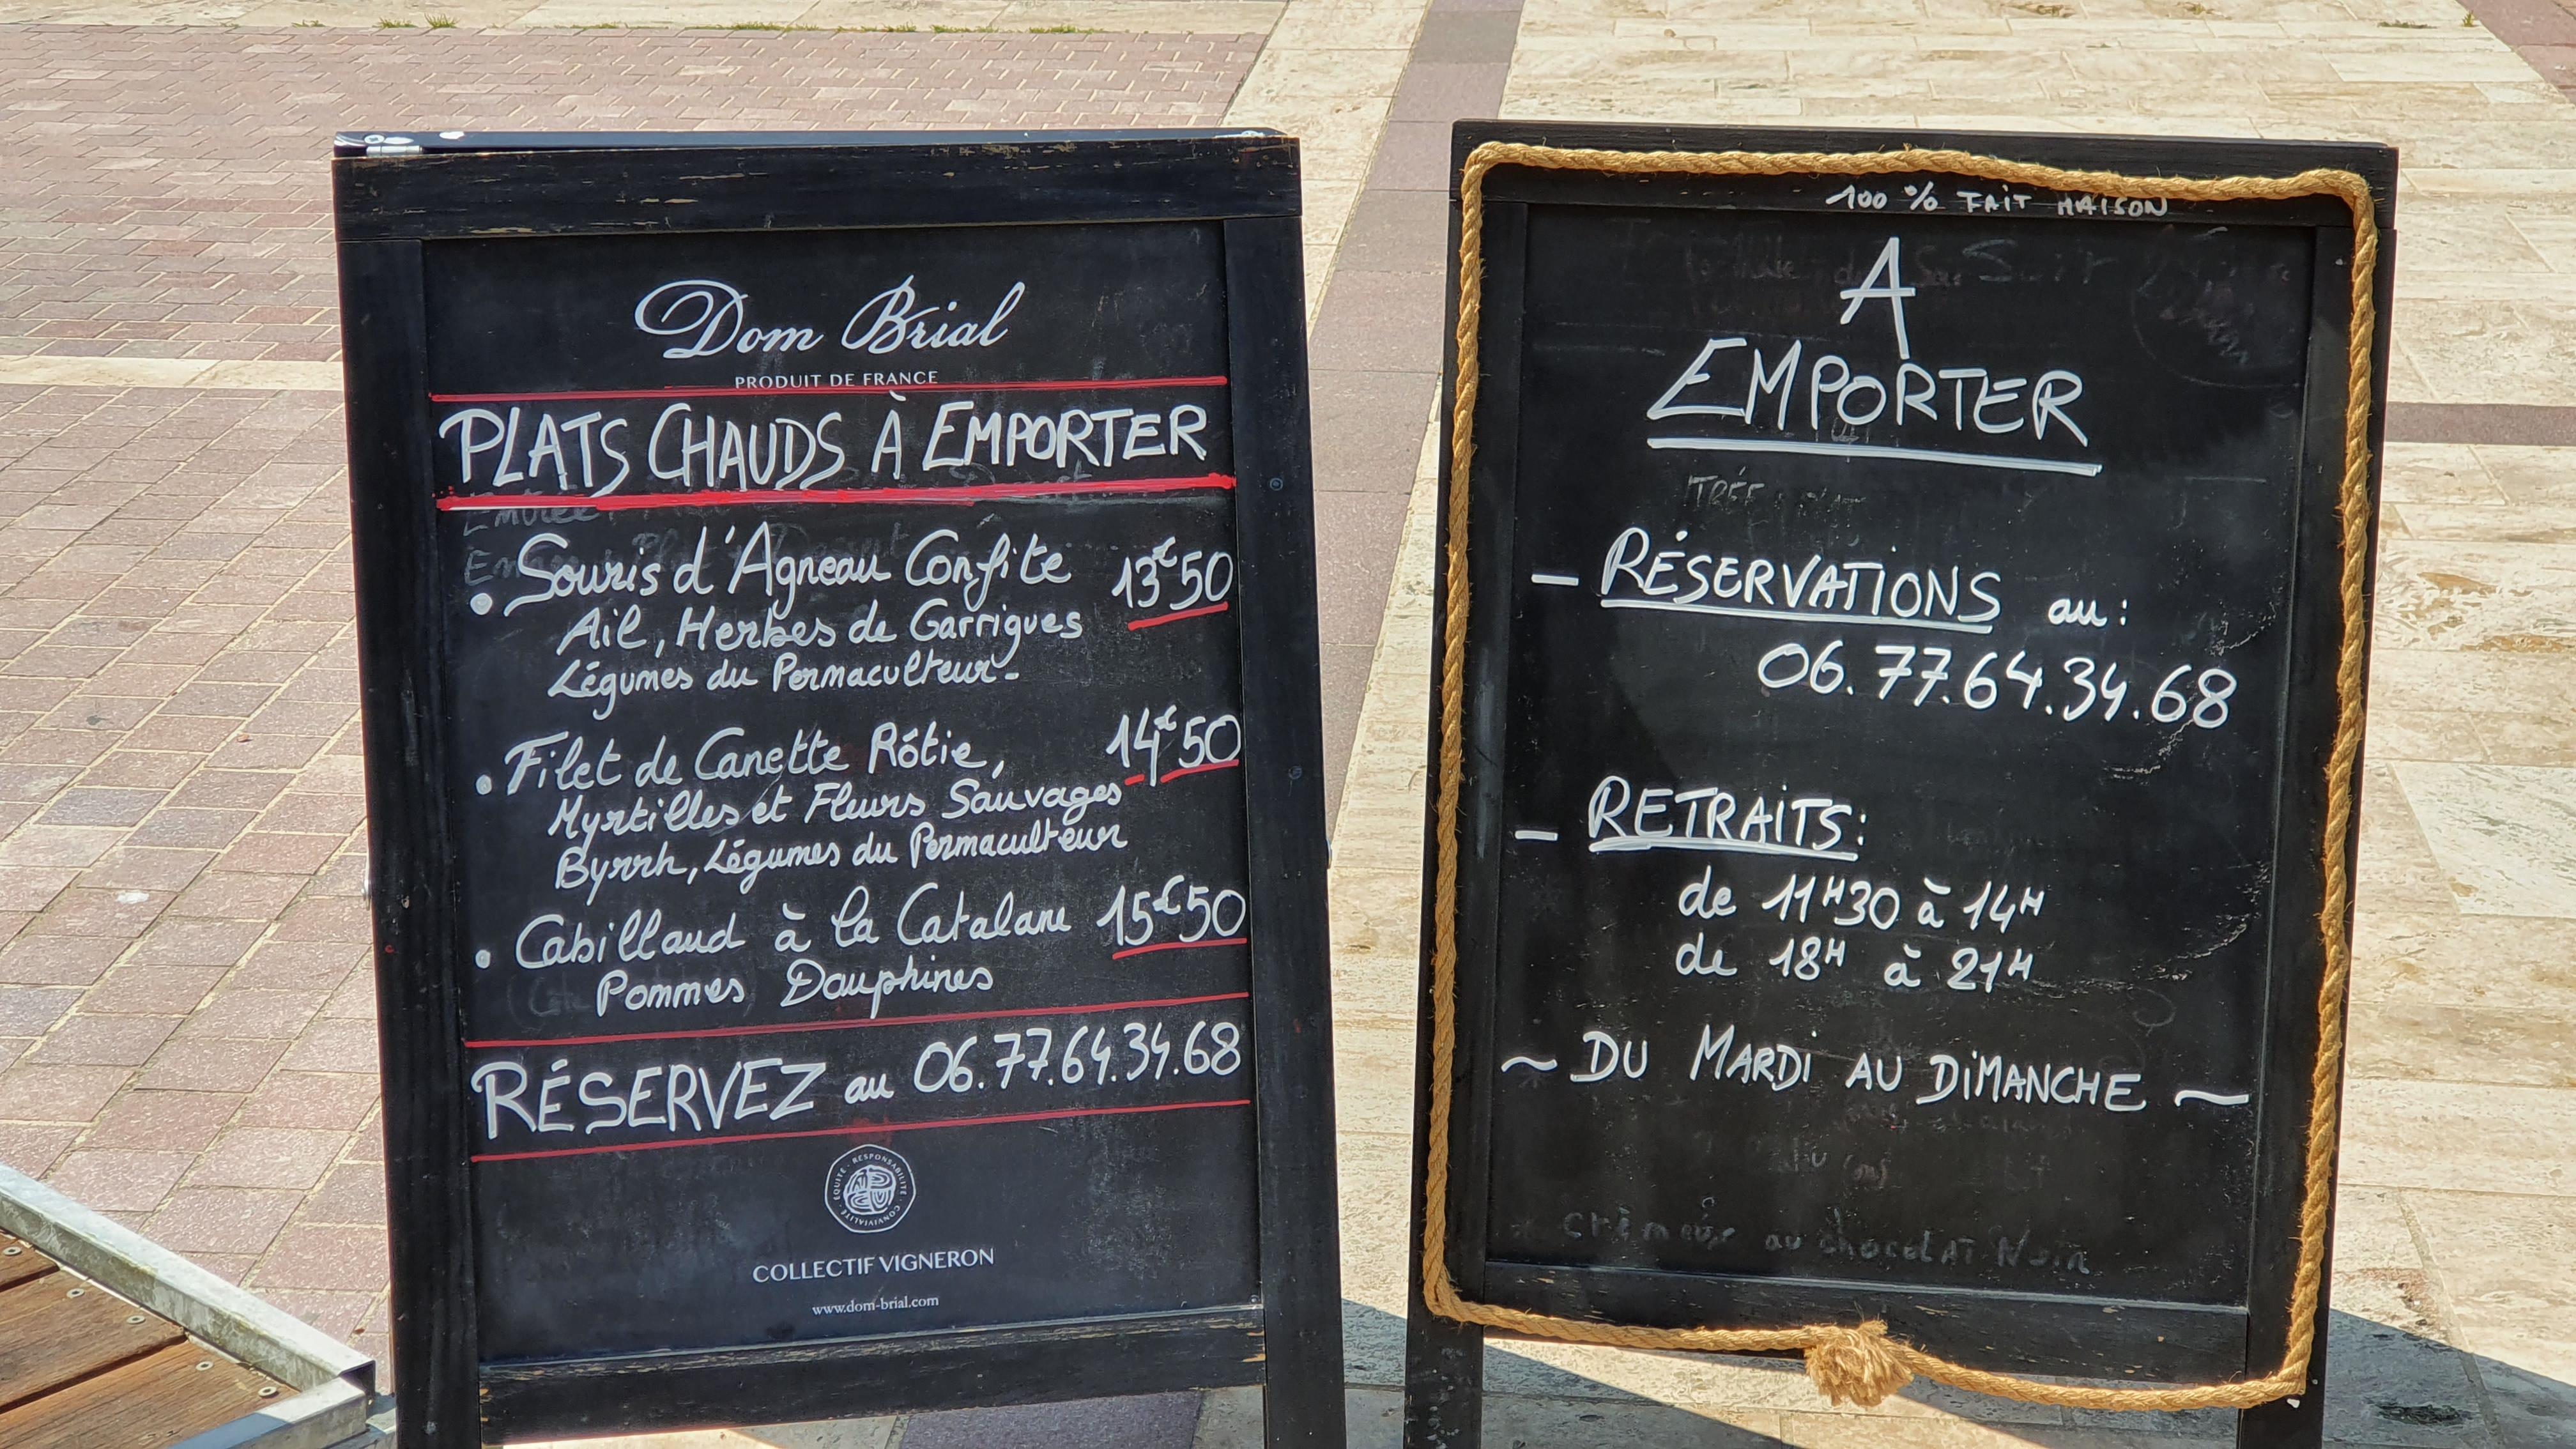 Dom Brial
PRODUIT DE FRANCE
PLATS CHAUDS À EMPORTER
• Souris d'Agneau Confite 13€50
Ail, Herbes de Garrigues
Légumes du Permaculteur-
• Filet de Canette Rôtie, 14€50
Myrtilles et Fleurs Sauvages
Byrrh, Légumes du Permaculteur
• Cabillaud à la Catalane 15€50
Pommes Dauphines
RÉSERVEZ au 06.77.64.34.68
ÉQUITÉ · RESPONSABILITÉ · CONVIVIALITÉ
COLLECTIF VIGNERON
www.dom-brial.com
100 % FAIT MAISON
A
EMPORTER
– RÉSERVATIONS au :
06.77.64.34.68
– RETRAITS :
de 11H30 à 14H
de 18H à 21H
~ DU MARDI AU DIMANCHE ~
au chocolat Noir